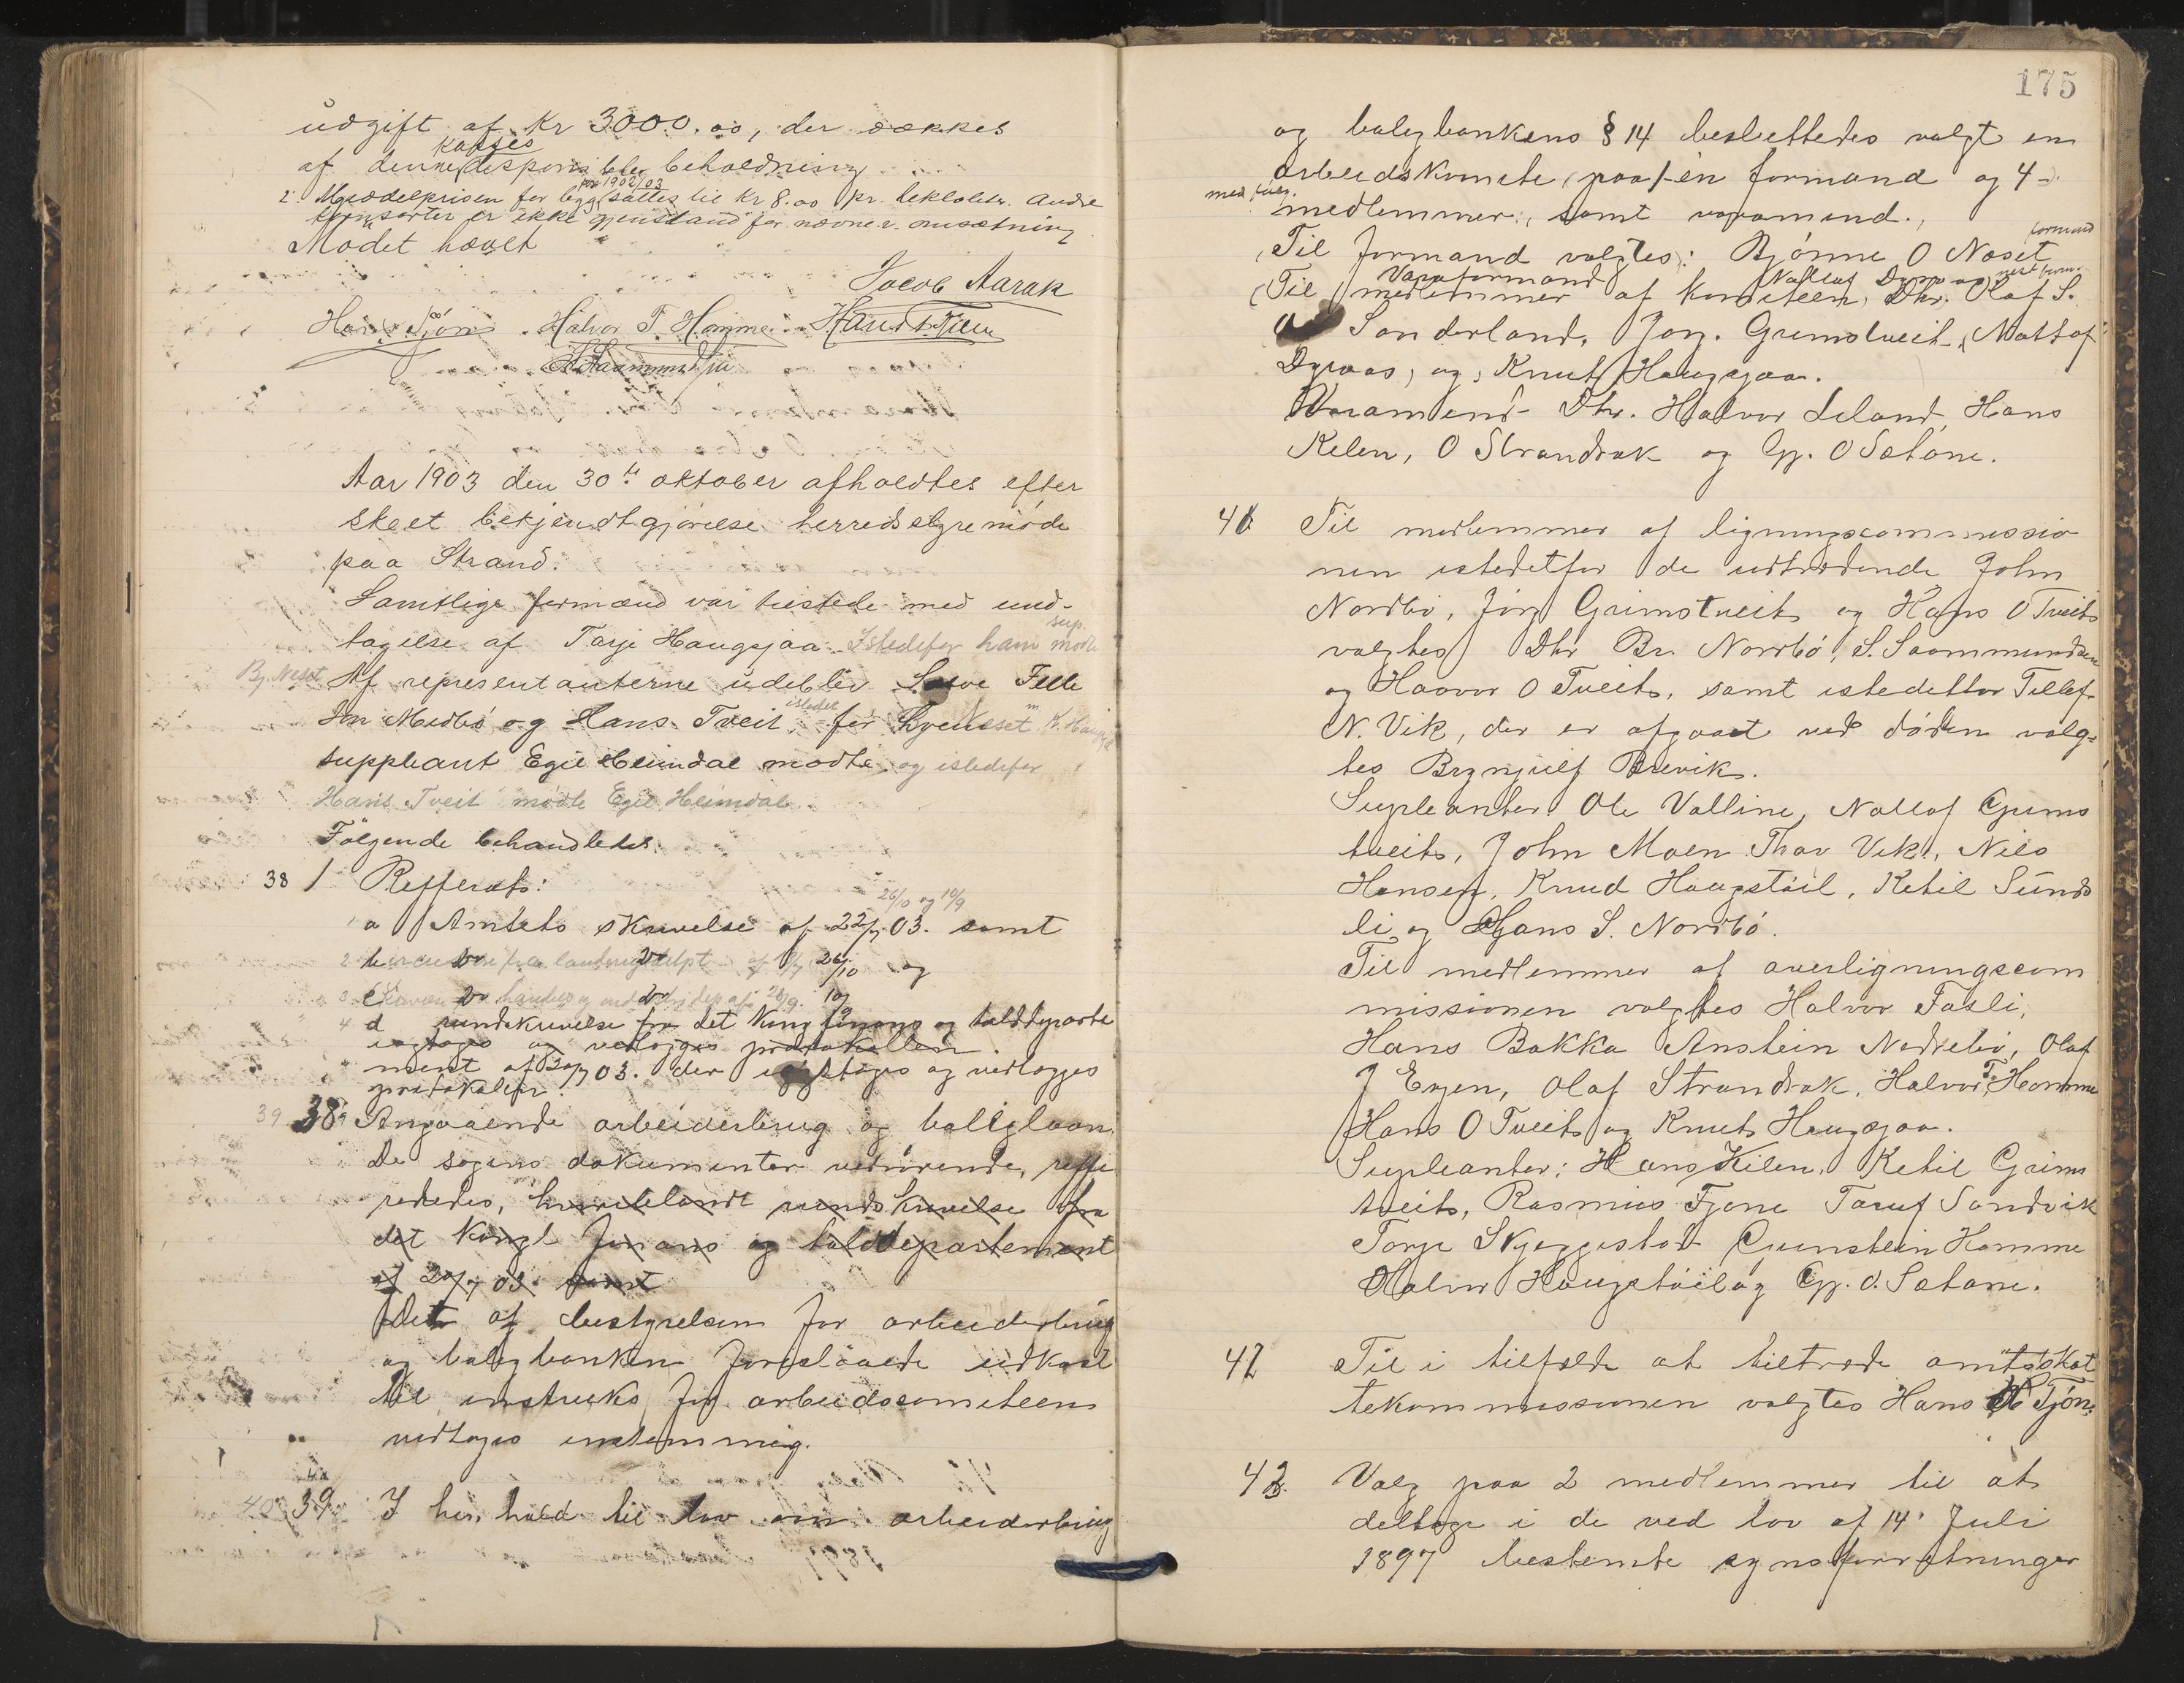 udgift af Kr 3000.00, der dækkes
kasses
af denne disponible beholdning
for 1902/03
2. Middelprisen for byg sættes til Kr 8.00 pr. hektoliter. Andre
kornsorter er ikke gjenstand for nævnev. omsætning
Mødet hævet
Jacob Aarak
Hans Tjøn. Halvor T. Homme. Hans Kilen
S. Saammundsen
Aar 1903 den 30te oktober afholdtes efter
skeet bekjendtgjørelse herredsstyremøde
paa Strand.
Samtlige formænd var tilstede med und-
sup.
tagelse af Tarje Haugsjaa. Istedefor ham mødte
Bj. Neset Af representanterne udeblev Salve Fille
istedet
Jon Medbø og Hans Tveit, for m K. Haugsj
suppleant Egil Heimdal mødte og istedefor
Hans Tveit mødte Egil Heimdal.
Følgende behandledes:
38 1 Refferat:
26/10 og 19/9
1 a Amtets skrivelse af 22/7 03. samt
2 fra landbrugsdept af 26/10 og
3 handels og industridep af 28/9. 10/
4 d rundskrivelse fra det Kong finans og tolddeparte
vedlægges protokollen.
ment af 20/7 03. der og vedlægges
protokollen.
39 38 Angaaende arbeiderbrug og boliglaan.
De sagens dokumenter vedrørende, reffe
reredes, hvoriblandt rundskrivelse fra
det Kongl Finans og tolddepartement
af 20/7 03. samt
Det af bestyrelsen for arbeiderbrug
og boligbanken foreslaaede udkast
til instruks for arbeidscomiteen
vedtoges enstemmig.
40 39 I henhold til lov om arbeiderbrug
175
og boligbankens § 14 besluttedes valgt en
arbeidskomite paa 1 én formand og 4
medlemmer, samt varamænd.
formand
Til formand valgtes: Bjønne O Næset
Varaformand Nallaf Dyraas
Til medlemmer af komiteen, Dhr. Olaf S.
Sonderland, Jørg. Grimstveit, Nottof
Dyraas, og Knut Haugsjaa.
Varamænd Dhr. Halvor Leland, Hans
Kilen, O Strandrak og Gj. O Satane.
41 Til medlemmer af ligningscommissio
nen istedetfor de udtrædende John
Nordbø, Jørg Grimstveit og Hans O Tveit
valgtes Dhr Br. Nordbø, S. Saammundsen
og Haavor O Tveit, samt istedetfor Tellef
N. Vik, der er afgaaet ved døden valg-
tes Brynjulf Brevik.
Supleanter Ole Valline, Nallaf Grims
tveit, John Moen Thor Vik, Nils
Hansen, Knud Haugstøil, Ketil Sunds
li og Hans S. Nordbø.
Til medlemmer af overligningscom
missionen valgtes Halvor Fasli,
Hans Bakka Anstein Nedrebø, Olaf
J Enjen, Olaf Strandrak, Halvor T. Homme
Hans O Tveit og Knut Haugsjaa.
Supleanter: Hans Kilen, Ketil Grims
tveit, Rasmus Fjone Taruf Sandvik
Torje Skjeggestad Gunstein Homme
Halvor Haugstøil og Gj. O. Satane.
42 Til i tilfælde at tiltræde amtsskat
tekommissionen valgtes Hans Tjøn.
43 Valg paa 2 medlemmer til at
deltage i de ved lov af 14. Juli
1897 bestemte synsforretninger